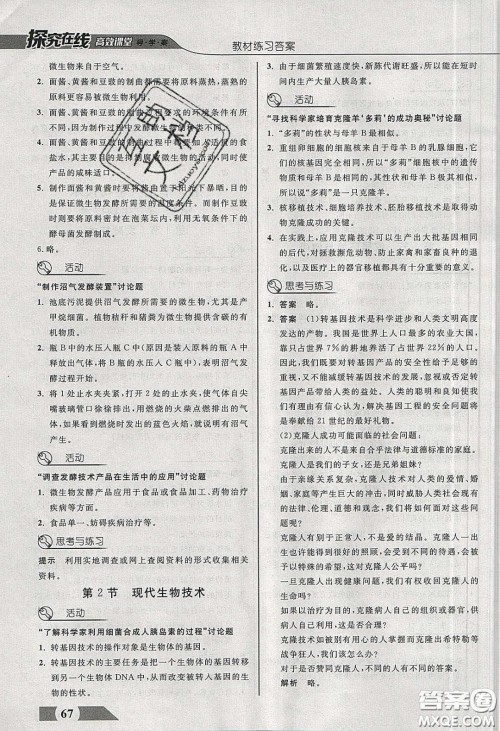 探究在线 高效课堂 导·学·案
教材练习答案
微生物来自于空气。
2. 面酱、黄酱和豆豉的制作都需要将原料蒸熟，蒸熟的
原料更容易被微生物利用。
3. 面酱、黄酱和豆豉的制作过程中要求的环境条件有所
不同。
4. 面酱、黄酱和豆豉的制作过程中
的目的是保证
5. 制作面酱和黄酱时需要将
是保证微生物发酵所需要的温度条件。而制作豆豉
时则需要将原料密封在泡菜坛内，利用无氧条件下的
酵母菌发酵制成。
6. 略。
活动
“制作沼气发酵装置”讨论题
1. 池底污泥提供沼气发酵所需要的微生物，主要是产
甲烷细菌。植物秸秆和猪粪为微生物提供含碳的有
机物。
2. 瓶B中的水压入C瓶中(原因是装入原料的瓶A中
释放出气体，将B瓶的水压入C瓶)，表明沼气发酵
过程开始。
3. 将1处止水夹夹紧，打开2处的止水夹，使气体自尖
嘴玻璃管口徐徐排出，用燃烧的火柴点燃排出的气
体，如果看到燃烧时发生的蓝色火焰，即表明有沼气
生成。
活动
“调查发酵技术产品在生活中的应用”讨论题
1. 微生物发酵产品应用于食品或食品加工、药物治疗
疾病等方面。
2. 食品单一、妨碍疾病治疗等。
思考与练习
提示 利用实地调查或网上查阅资料的形式收集相关
资料。
第2节 现代生物技术
活动
“了解科学家利用细菌合成人胰岛素的过程”讨论题
1. 转基因技术的操作对象是基因。
2. 转基因技术的主要任务是把一个生物体的基因转移
到另一个生物体DNA中，从而达到定向改造生物
的性状。
67
3. 由于细菌繁殖速度快、新陈代谢旺盛，因此可以在短
时间内生产大量人胰岛素。
活动
“寻找科学家培育克隆羊‘多莉’的成功奥秘”讨论题
1. “多莉”的性状与母羊B最相似。
2. 重组卵细胞的细胞核来自于母羊B的乳腺细胞，
“多莉”细胞核中的遗传物质与母羊B的基本一致，
因此“多莉”是一只克隆羊。
3. 核移植技术、细胞培养技术、胚胎移植技术等是动
动物克隆成功的关键。
4. 在实践上，应用克隆技术可以生产出大批基因相同
的动物，对拯救濒危动物、防止家禽家畜良种退化，
以及医疗上的器官移植都具有十分重要的意义。
思考与练习
1. 答案 略。
2. 答案 (1)转基因技术是科学进步和人类文明高度
发达的产物。我国是世界上人口最多的国家，要依
靠只占世界7%的耕地养活了占世界22%的人口，
因此，我们既要对转基因产品的安全性给予足够的
重视，又要大力发展转基因技术，享受高科技和转基
因产品带给人类的益处。人类创造的转基因技术
同样是一把双刃剑，正确引导和利用转基因工程将
带给人类21世纪的最大利益。
(2)克隆人成功可能面临的社会问题：
克隆人的家庭关系本来就不会来自合乎法律与道德标准的家庭。
克隆人是我们的子女，还是兄弟姐妹？
由于亲缘关系复杂，克隆人技术对人类的情爱、婚
姻、家庭产生了巨大的冲击，同时，人类现有的许多
法律、道德、伦理等，都会产生冲突。
克隆人有别于正常人，不是一男一女爱情的结晶，不
是在父母的关爱中诞生的，他们能够健康成长吗？
一旦克隆人出现健康问题，谁来对克隆人的生命负
责？
如果没有治疗的目的，克隆人的身体或组织、器官，
供人类移植、使用，这对克隆人公平吗？
克隆技术如果被别有用心的人掌握，克隆出希特勒等
战争狂人，我们的世界岂不是将面临可怕的灾难吗？
解析 略。
MXQE.COM